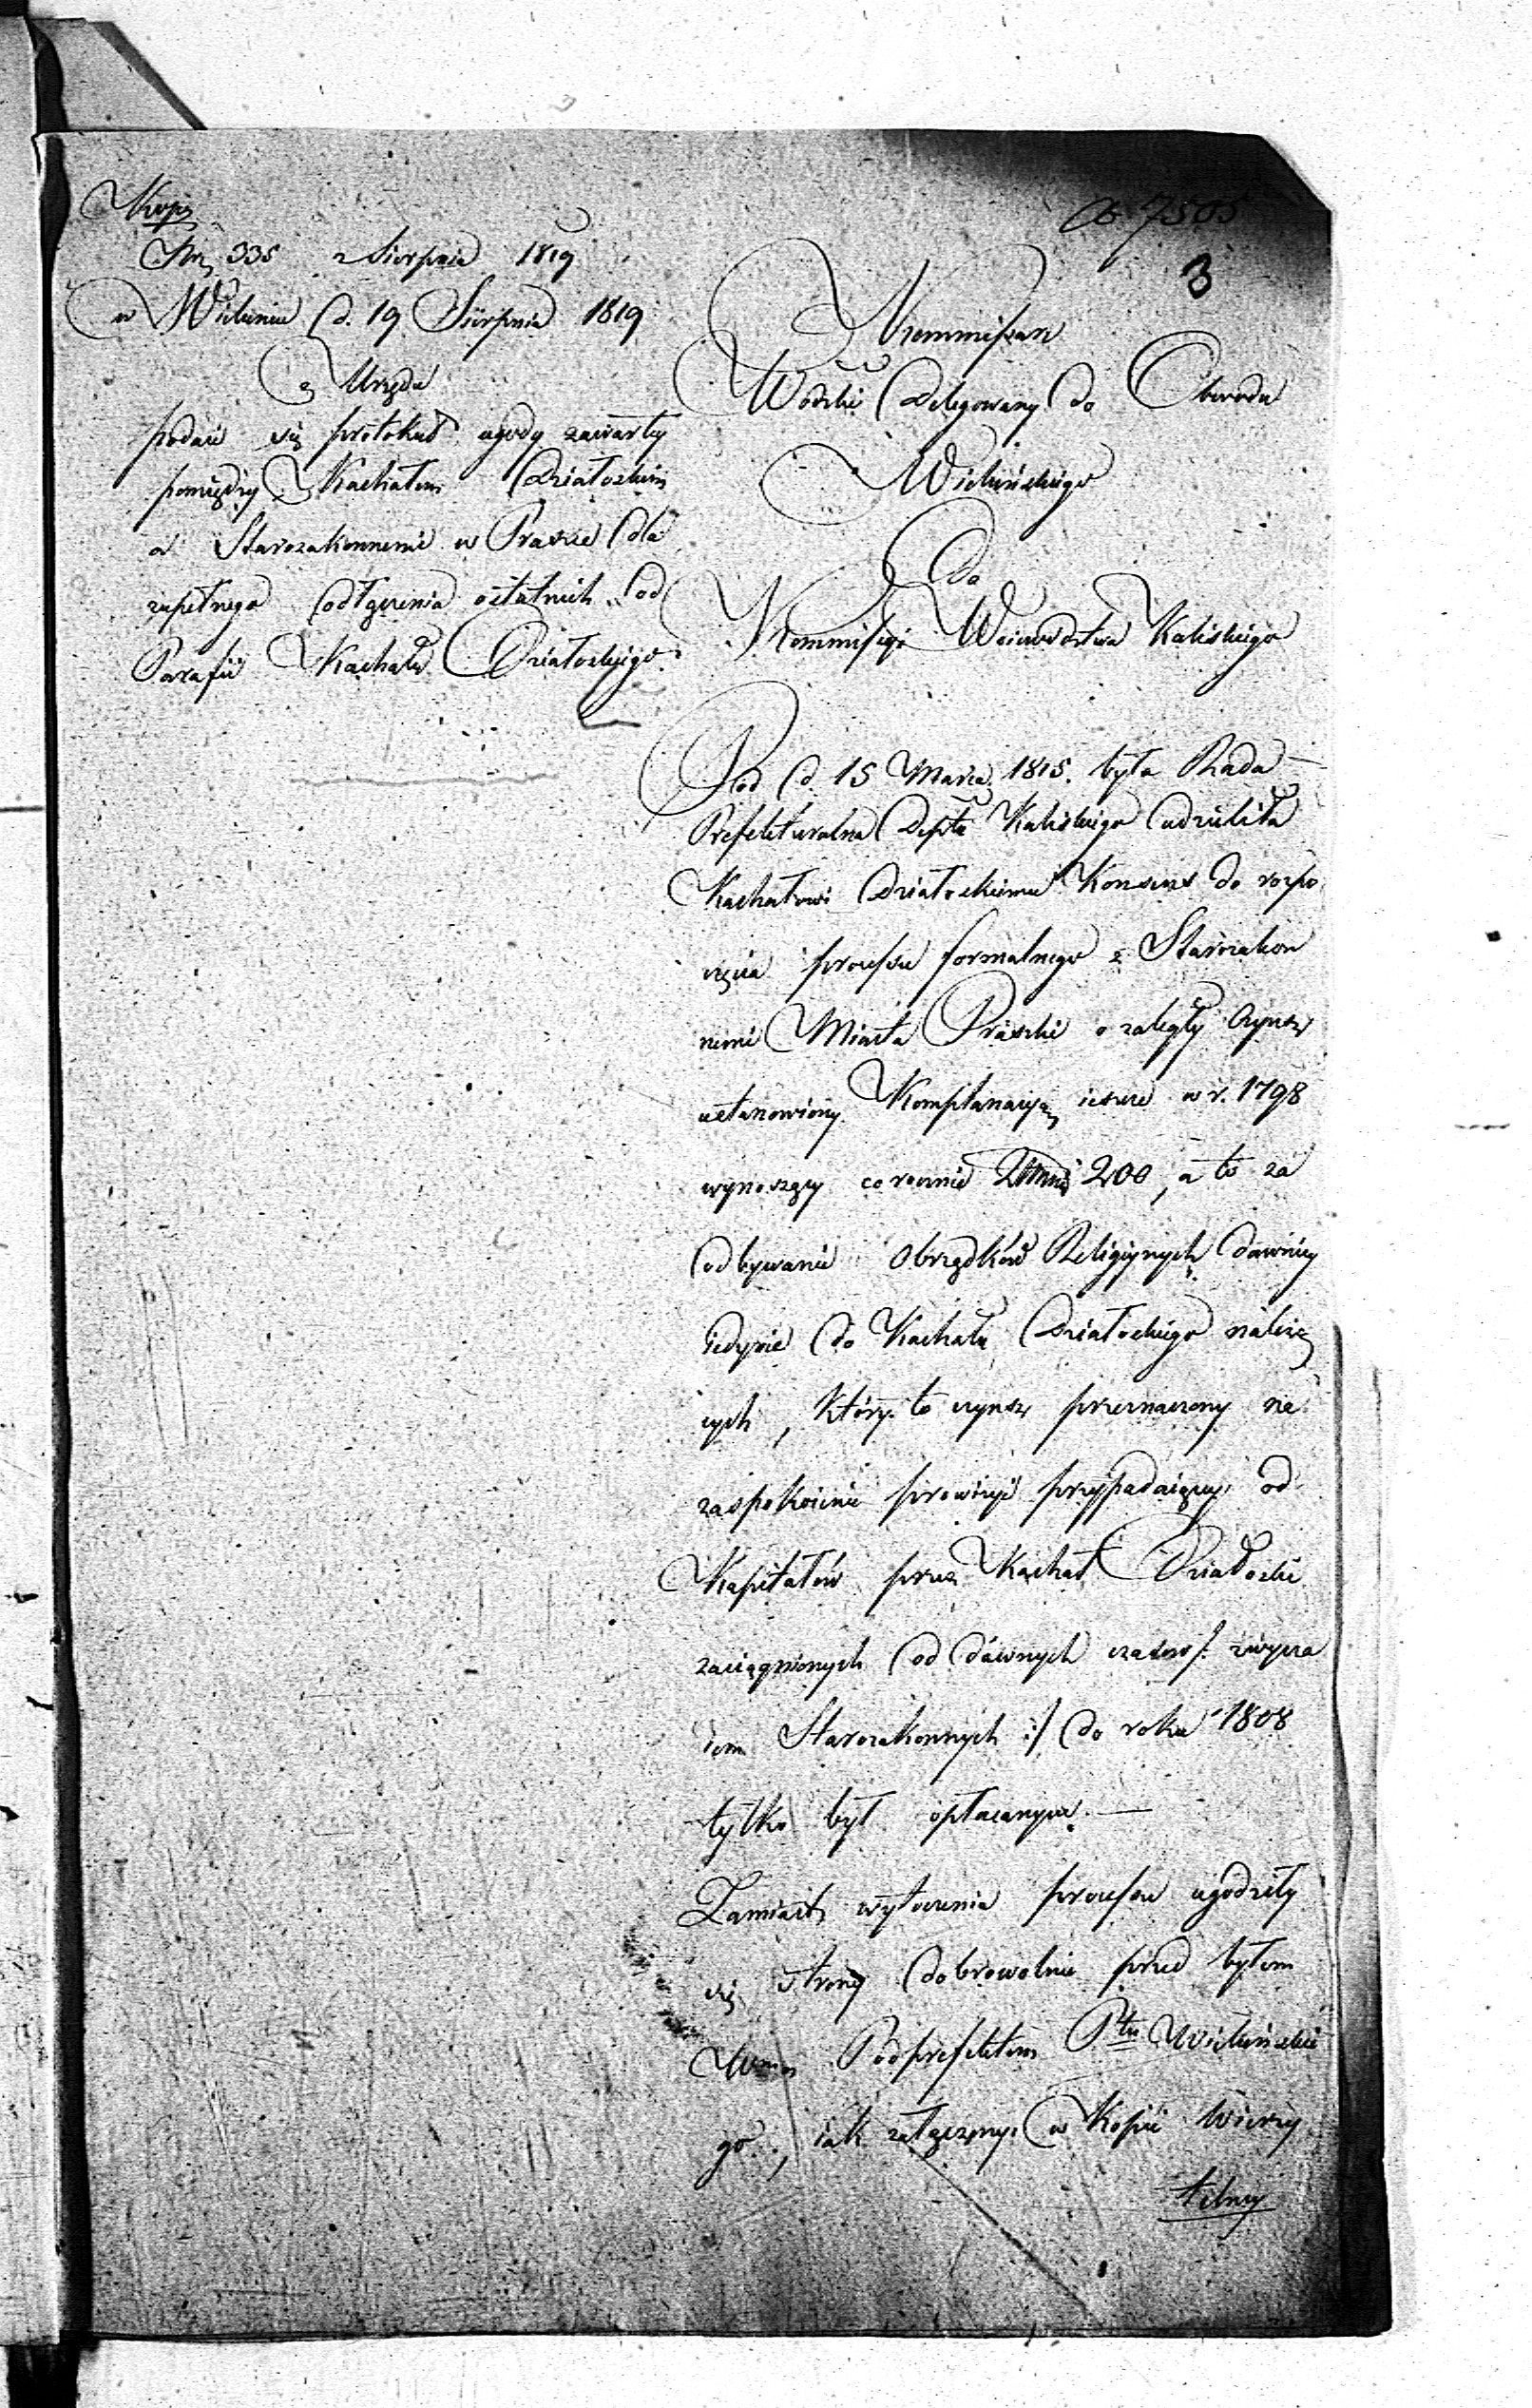 Kopja
Nr 335 z Sierpnia 1819
w Wieluniu d. 19 Sierpnia 1819
z Urzędu
podaie się protokuł ugody zawarty
pomiędzy Kachałem Działoskim
a Starozakonnemi w Praszce dla
zupełnego odłączenia ostatnich od
Parafii Kachału Działoskiego.
7505
3
Kommissarz
Wodzki Delegowany do Obwodu
Wieluńskiego
Do
Kommissyi Woiewodztwa Kaliskiego
Pod d. 15 Marca 1815. była Rada
Prefekturalna Deptu Kaliskiego udzieliła
Kachałowi Działoskiemu Konsens do rozpo
częcia processu formalnego z Starozakon
nemi Miasta Praszki o zaległy Czynsz
ustanowiony Komplanacyą ieszcze w r. 1798
wynoszący corocznie 200, a to za
odbywanie Obrządków Religiynych dawniey
iedynie do Kachału Działoskiego należą
cych, który to czynsz przeznaczony na
zaspokoienie prowizyi przypadaiącey od
Kapitałów przez Kachał Działoski
zaciągnionych od dawnych czasów /: zwycza
iem Starozakonnych :/ do roku 1808
tylko był opłacanym. —
Zamiast wytoczenia processu ugodziły
się strony dobrowolnie przed byłem
Podprefektem Ptu Wieluńskie
go, iak załączony w Kopii Wierzy
telney